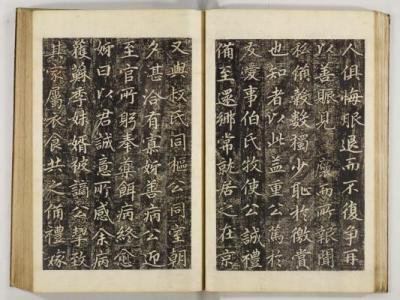 人俱悔服退而不復爭再
以善賑見而所報聞
私備穀數獨少恥於徼賞
也知者以此益重公篤於
友愛事伯氏牧使公誠禮
備至還鄉常就居之在京
又與叔氏同樞公同室朝
夕甚洽有寡姊善病公迎
至官所躬奉藥餌病終愈
姊曰以君誠意所感余病
獲蘇季妹婿被謫公挈致
其家屬衣食共之備禮嫁